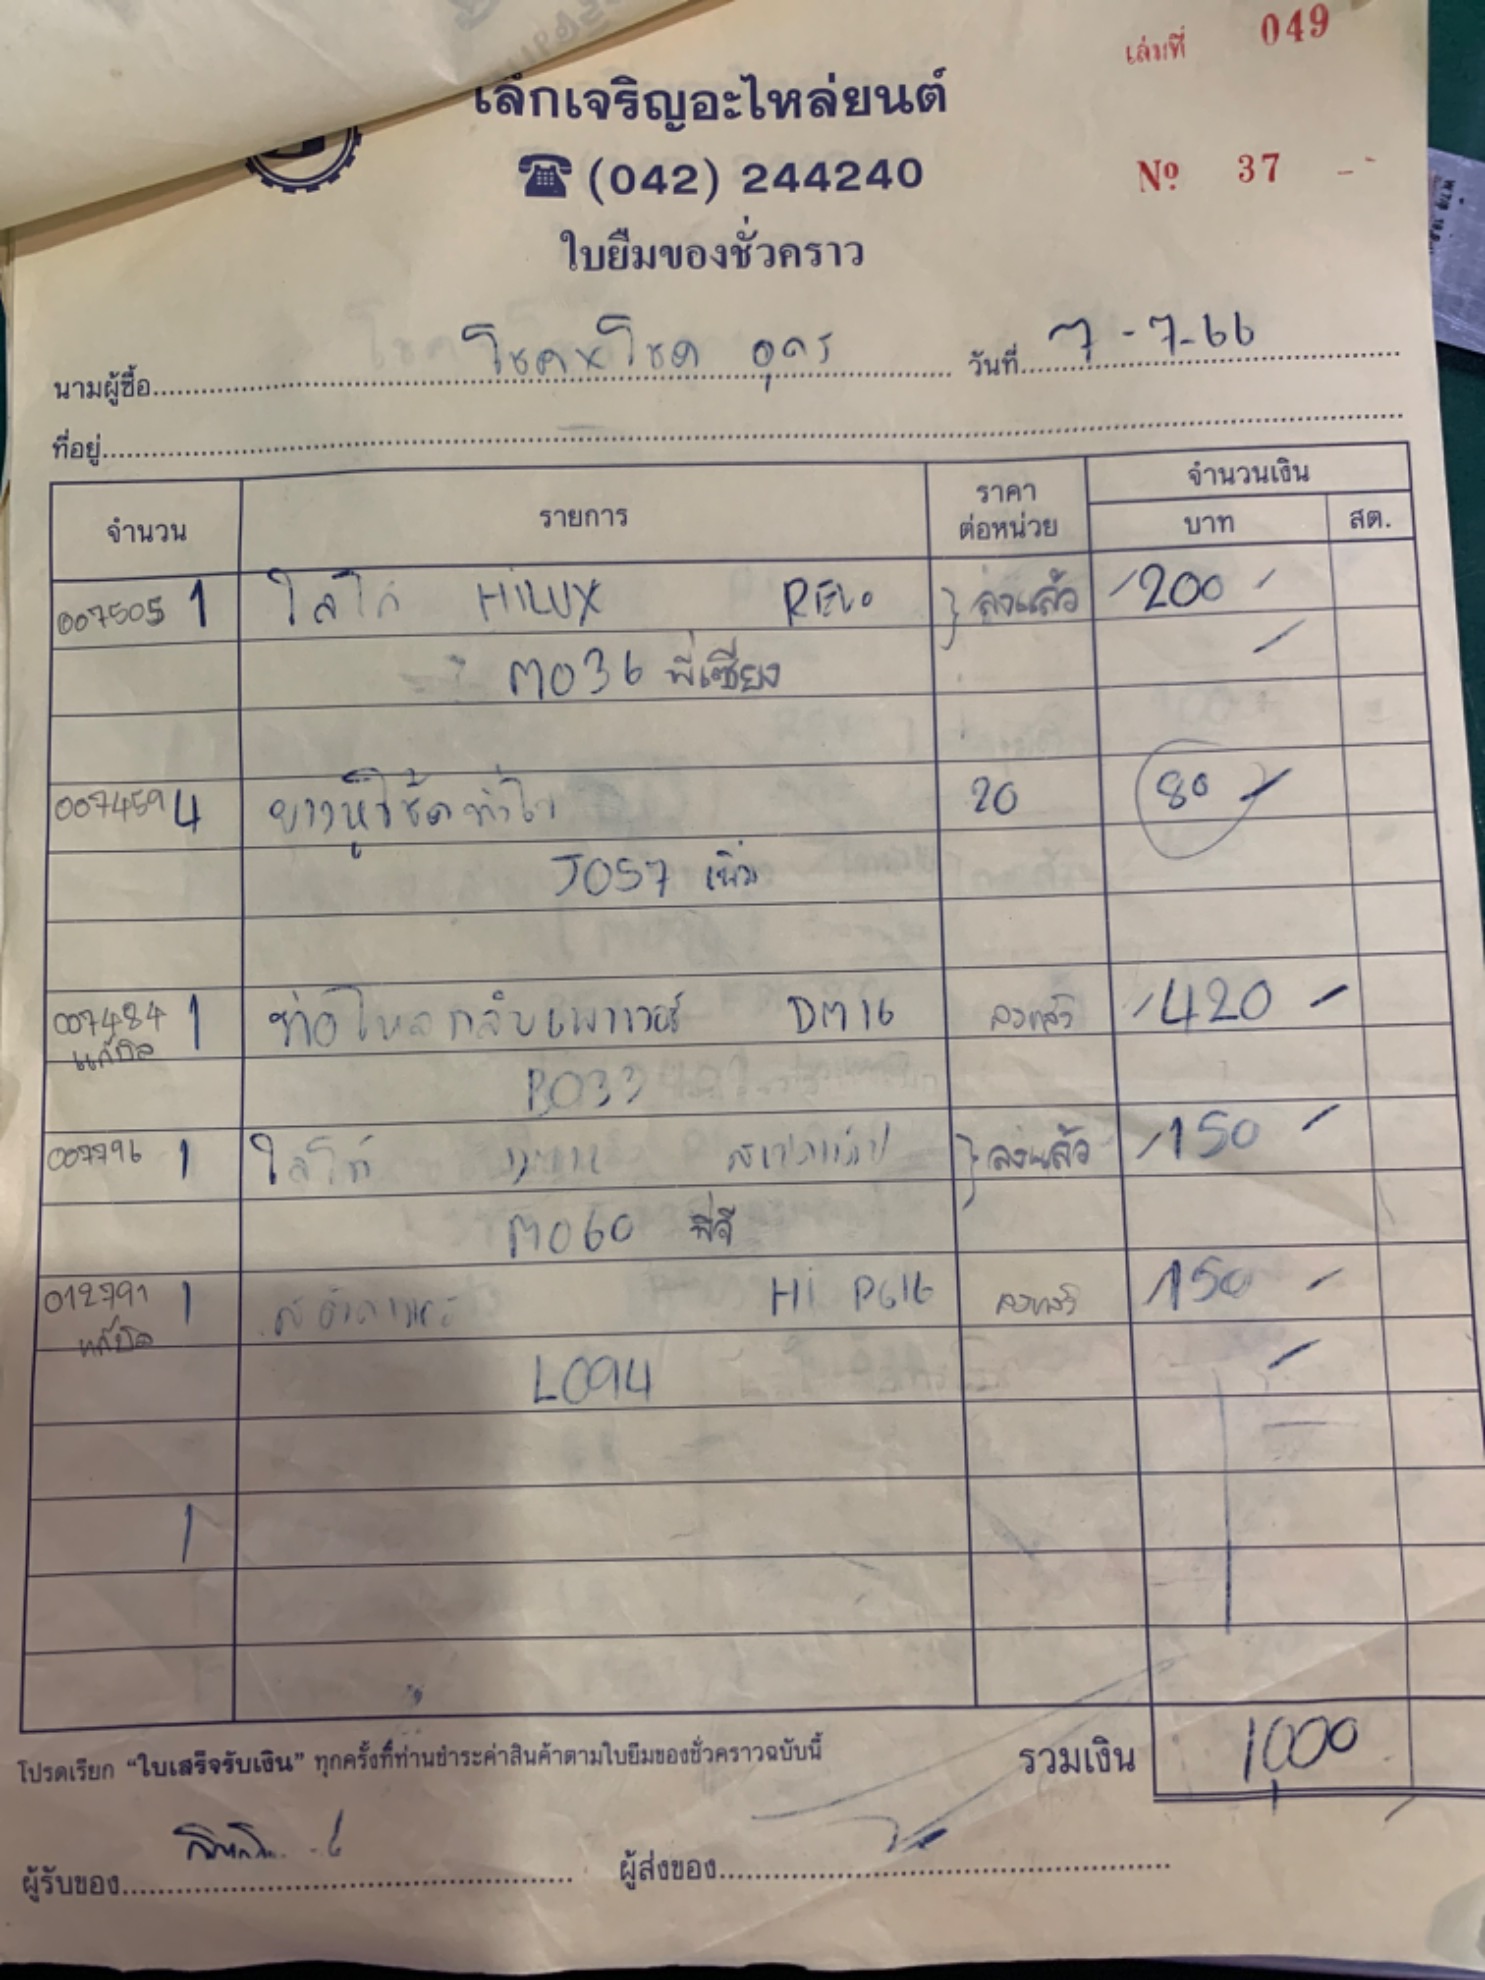 เล่มที่ 049
เล็กเจริญอะไหล่ยนต์
(042) 244240
Nº 37
ใบยืมของชั่วคราว
นามผู้ซื้อ โชคxโชค อุดร วันที่ 7-7-66
ที่อยู่
จำนวน รายการ ราคาต่อหน่วย จำนวนเงิน บาท สต.
007505 1 ไล่โก่ HILUX REVO ลงแล้ว 200
M036 พี่เซียง
007459 4 ยางหูโช้ค 20 80
J057
007484 1 ท่อไหลกลับเพาเวอร์ DM16 ลงแล้ว 420
แก้บิล
P033
007796 1 ลงแล้ว 150
M060 พี่จี
012791 1 Hi PG16 ลงแล้ว 150
แก้บิล
L094
1
โปรดเรียก “ใบเสร็จรับเงิน” ทุกครั้งที่ท่านชำระค่าสินค้าตามใบยืมของชั่วคราวฉบับนี้ รวมเงิน 1,000
ผู้รับของ ผู้ส่งของ